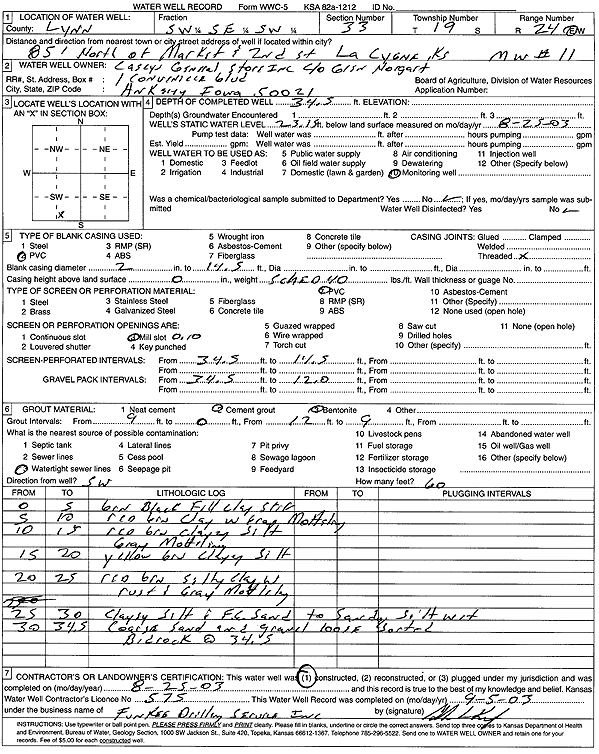 WATER WELL RECORD Form WWC-5 KSA 82a-1212 ID No.
1 LOCATION OF WATER WELL: Fraction Section Number Township Number Range Number
County: Lynn SW ¼ SE ¼ SW ¼ 33 T 19 S R 24 E/W
Distance and direction from nearest town or city street address of well if located within city?
85' North of Market & 2nd St La Cygne, Ks MW #11
2 WATER WELL OWNER: Caseys General Store Inc c/o
RR#, St. Address, Box # : 1 Convenience Blvd Board of Agriculture, Division of Water Resources
City, State, ZIP Code : Ankeny Iowa 50021 Application Number:
3 LOCATE WELL'S LOCATION WITH AN "X" IN SECTION BOX:
N
NW NE
W E
SW SE
X
S
4 DEPTH OF COMPLETED WELL 34.5 ft. ELEVATION:
Depth(s) Groundwater Encountered 1 ft. 2 ft. 3 ft.
WELL'S STATIC WATER LEVEL 23.15 ft. below land surface measured on mo/day/yr 8-25-03
Pump test data: Well water was ft. after hours pumping gpm
Est. Yield gpm: Well water was ft. after hours pumping gpm
WELL WATER TO BE USED AS: 5 Public water supply 8 Air conditioning 11 Injection well
1 Domestic 3 Feedlot 6 Oil field water supply 9 Dewatering 12 Other (Specify below)
2 Irrigation 4 Industrial 7 Domestic (lawn & garden) 10 Monitoring well
Was a chemical/bacteriological sample submitted to Department? Yes No ✓; If yes, mo/day/yrs sample was submitted
Water Well Disinfected? Yes No ✓
5 TYPE OF BLANK CASING USED: 5 Wrought iron 8 Concrete tile CASING JOINTS: Glued Clamped
1 Steel 3 RMP (SR) 6 Asbestos-Cement 9 Other (specify below) Welded
2 PVC 4 ABS 7 Fiberglass Threaded X
Blank casing diameter 2 in. to 14.5 ft., Dia in. to ft., Dia in. to ft.
Casing height above land surface 0 in., weight SCHED 40 lbs./ft. Wall thickness or guage No.
TYPE OF SCREEN OR PERFORATION MATERIAL: 7 PVC 10 Asbestos-Cement
1 Steel 3 Stainless Steel 5 Fiberglass 8 RMP (SR) 11 Other (Specify)
2 Brass 4 Galvanized Steel 6 Concrete tile 9 ABS 12 None used (open hole)
SCREEN OR PERFORATION OPENINGS ARE: 5 Guazed wrapped 8 Saw cut 11 None (open hole)
1 Continuous slot 3 Mill slot 0.10 6 Wire wrapped 9 Drilled holes
2 Louvered shutter 4 Key punched 7 Torch cut 10 Other (specify) ft.
SCREEN-PERFORATED INTERVALS: From 34.5 ft. to 14.5 ft., From ft. to ft.
From ft. to ft., From ft. to ft.
GRAVEL PACK INTERVALS: From 34.5 ft. to 12.0 ft., From ft. to ft.
From ft. to ft., From ft. to ft.
6 GROUT MATERIAL: 1 Neat cement 2 Cement grout 3 Bentonite 4 Other
Grout Intervals: From 9 ft. to 0 ft., From 12 ft. to 9 ft., From ft. to ft.
What is the nearest source of possible contamination: 10 Livestock pens 14 Abandoned water well
1 Septic tank 4 Lateral lines 7 Pit privy 11 Fuel storage 15 Oil well/Gas well
2 Sewer lines 5 Cess pool 8 Sewage lagoon 12 Fertilizer storage 16 Other (specify below)
3 Watertight sewer lines 6 Seepage pit 9 Feedyard 13 Insecticide storage
Direction from well? SW How many feet? 60
FROM TO LITHOLOGIC LOG FROM TO PLUGGING INTERVALS
0 5 brn Black Fill clay Stiff
5 10 red brn Clay w gray Mottling
10 15 red brn clayey Silt
Gray Mottling
15 20 yellow brn Clayey Silt
20 25 red brn Silty Clay w
rust & Gray Mottling
25 30 Clayey Silt & F.C. Sand to Sandy Silt wet
30 34.5 Coarse Sand and gravel loose Sorted
Bedrock @ 34.5
7 CONTRACTOR'S OR LANDOWNER'S CERTIFICATION: This water well was (1) constructed, (2) reconstructed, or (3) plugged under my jurisdiction and was
completed on (mo/day/year) 8-25-03 and this record is true to the best of my knowledge and belief. Kansas
Water Well Contractor's Licence No 575 This Water Well Record was completed on (mo/day/yr) 9-5-03
under the business name of Funkee Drilling Service Inc by (signature)
INSTRUCTIONS: Use typewriter or ball point pen. PLEASE PRESS FIRMLY and PRINT clearly. Please fill in blanks, underline or circle the correct answers. Send top three copies to Kansas Department of Health
and Environment, Bureau of Water, Geology Section, 1000 SW Jackson St., Suite 420, Topeka, Kansas 66612-1367. Telephone 785-296-5522. Send one to WATER WELL OWNER and retain one for your
records. Fee of $5.00 for each constructed well.